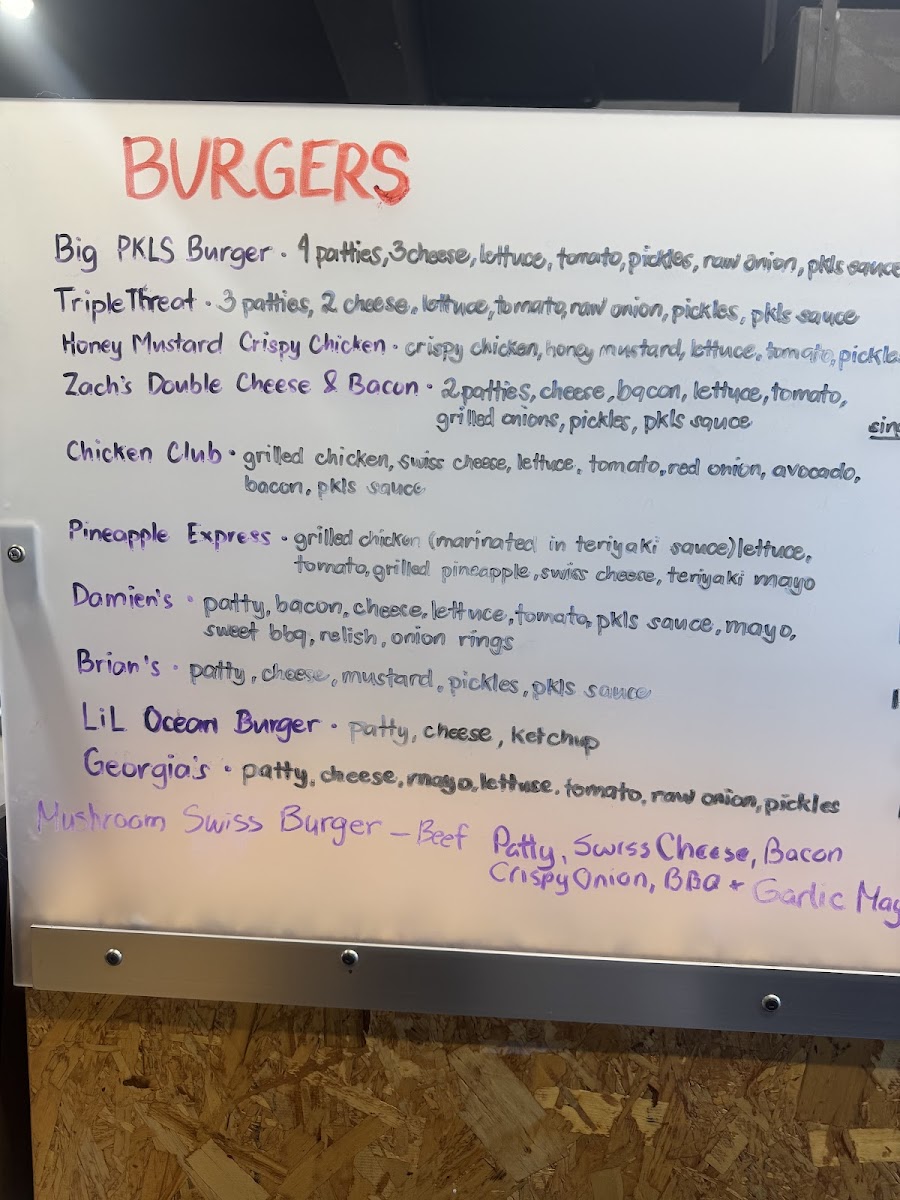 BURGERS
Big PKLS Burger · 4 patties, 3 cheese, lettuce, tomato, pickles, raw onion, pkls sauce
Triple Threat · 3 patties, 2 cheese, lettuce, tomato, raw onion, pickles, pkls sauce
Honey Mustard Crispy Chicken · crispy chicken, honey mustard, lettuce, tomato, pickle
Zach's Double Cheese & Bacon · 2 patties, cheese, bacon, lettuce, tomato,
grilled onions, pickles, pkls sauce
sin
Chicken Club · grilled chicken, swiss cheese, lettuce, tomato, red onion, avocado,
bacon, pkls sauce
Pineapple Express · grilled chicken (marinated in teriyaki sauce) lettuce,
tomato, grilled pineapple, swiss cheese, teriyaki mayo
Damien's · patty, bacon, cheese, lettuce, tomato, pkls sauce, mayo,
sweet bbq, relish, onion rings
Brian's · patty, cheese, mustard, pickles, pkls sauce
LiL Ocean Burger · patty, cheese, ketchup
Georgia's · patty, cheese, mayo, lettuse, tomato, raw onion, pickles
Mushroom Swiss Burger – Beef Patty, Swiss Cheese, Bacon
Crispy Onion, BBQ + Garlic May